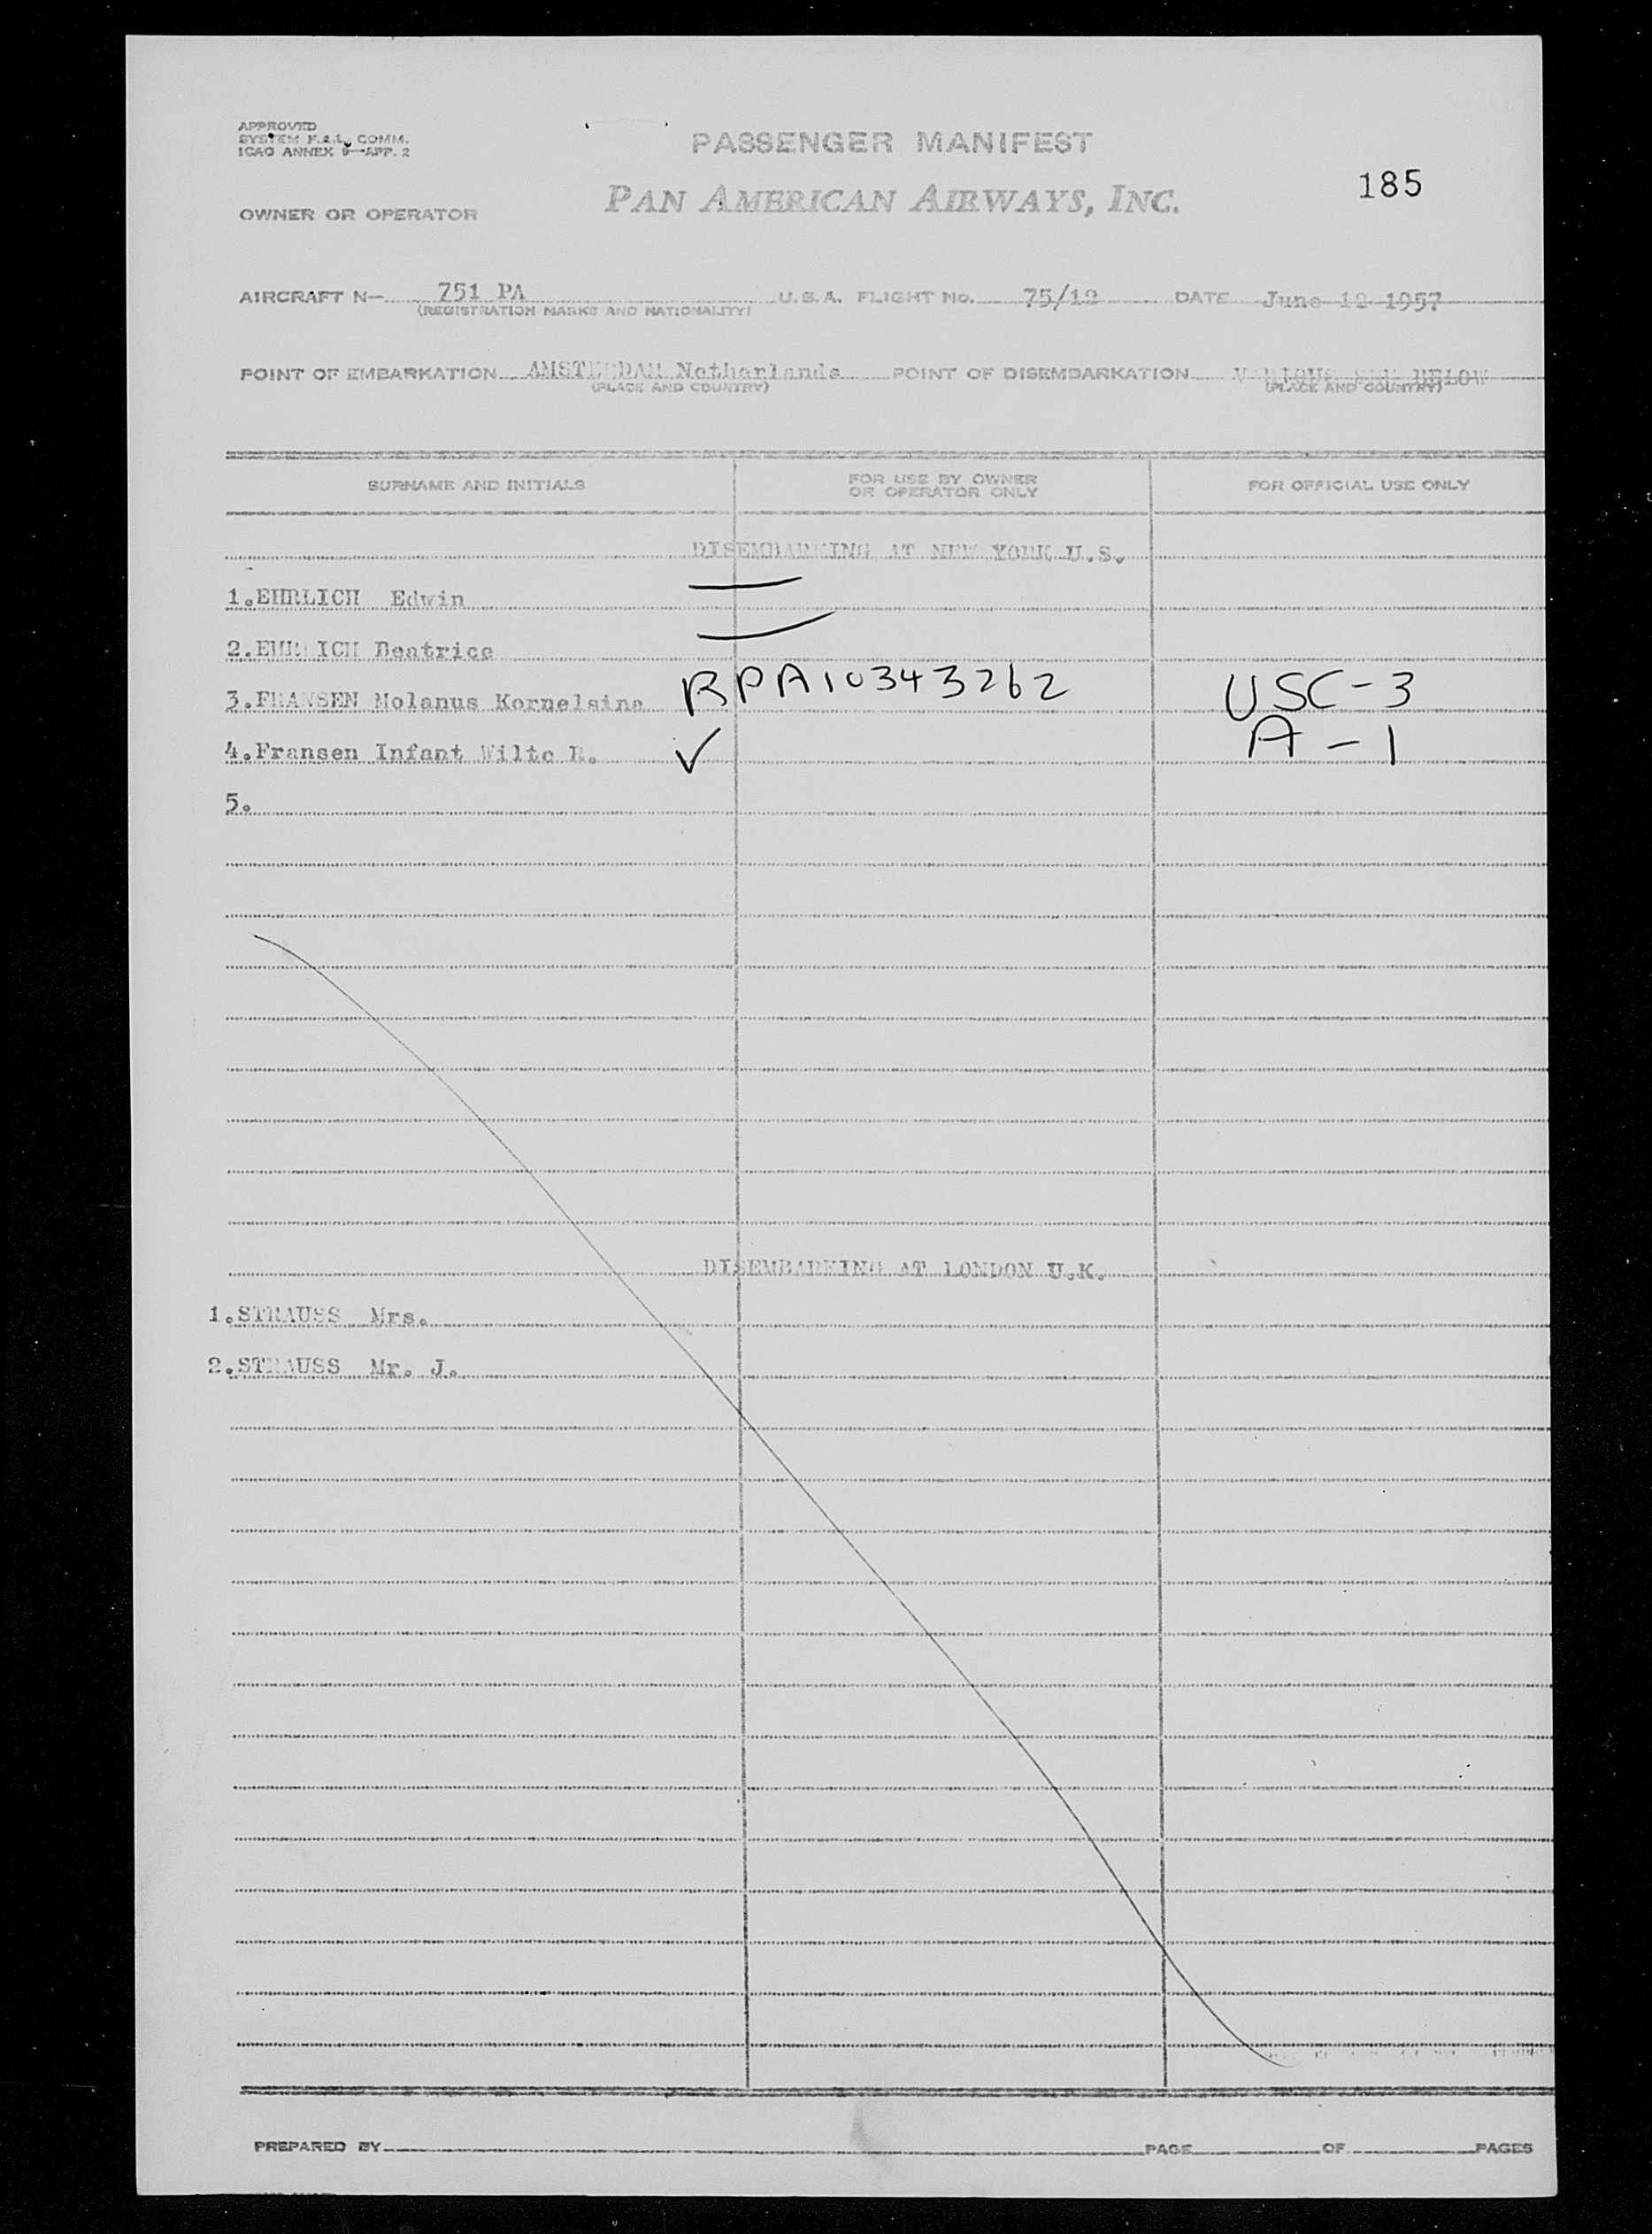 APPROVED
SYSTEM F.A.L. COMM.
ICAO ANNEX 9—APP. 2
PASSENGER MANIFEST
185
OWNER OR OPERATOR
PAN AMERICAN AIRWAYS, INC.
AIRCRAFT N— 751 PA U.S.A. FLIGHT NO. 75/12 DATE June 12 1957
(REGISTRATION MARKS AND NATIONALITY)
POINT OF EMBARKATION AMSTERDAM Netherlands POINT OF DISEMBARKATION VARIOUS SEE BELOW
(PLACE AND COUNTRY) (PLACE AND COUNTRY)
SURNAME AND INITIALS FOR USE BY OWNER OR OPERATOR ONLY FOR OFFICIAL USE ONLY
DISEMBARKING AT NEW YORK U.S.
1.EHRLICH Edwin
2.EHRLICH Beatrice
3.FRANSEN Molanus Kornelsina RPA10343262 USC-3
4.Fransen Infant Wilte R. ✓ A-1
5.
DISEMBARKING AT LONDON U.K.
1.STRAUSS Mrs.
2.STRAUSS Mr. J.
PREPARED BY PAGE OF PAGES